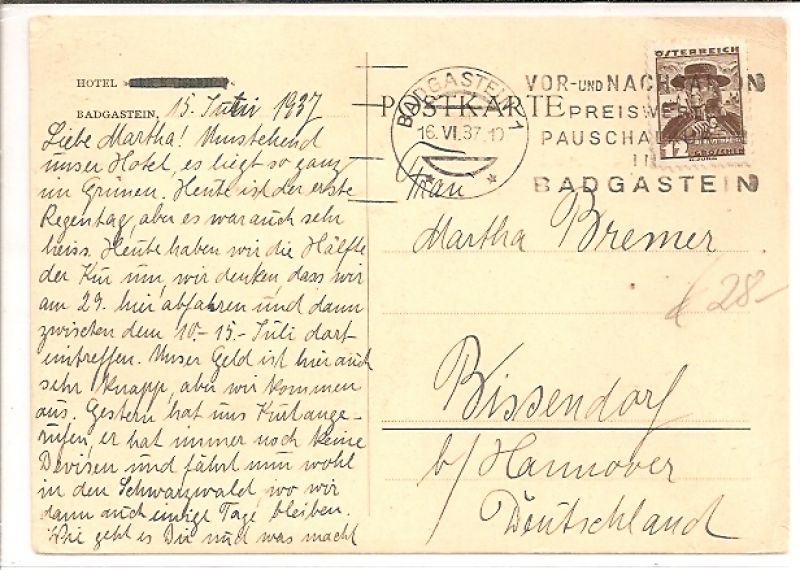 HOTEL
BADGASTEIN, 15. Juni 1937
Liebe Martha! Umstehend
unser Hotel, es liegt so ganz
im Grünen. Heute ist der erste
Regentag, aber es war auch sehr
heiss. Heute haben wir die Hälfte
der Kur um, wir denken dass wir
am 29. hier abfahren und dann
zwischen dem 10.-15.- Juli dort
eintreffen. Unser Geld ist hier auch
sehr knapp, aber wir kommen
aus. Gestern hat uns Kurt ange-
rufen, er hat immer noch keine
Devisen und fährt nun wohl
in den Schwarzwald, wo wir
dann auch einige Tage bleiben.
Wie geht es Dir und was macht
POSTKARTE
BADGASTEIN 1
16. VI. 37
VOR- UND NACH
PREISWERTE
PAUSCHA
IN
BADGASTEIN
ÖSTERREICH
12
GROSCHEN
Frau
Martha Bremer
28-
Bissendorf
b/Hannover
Deutschland